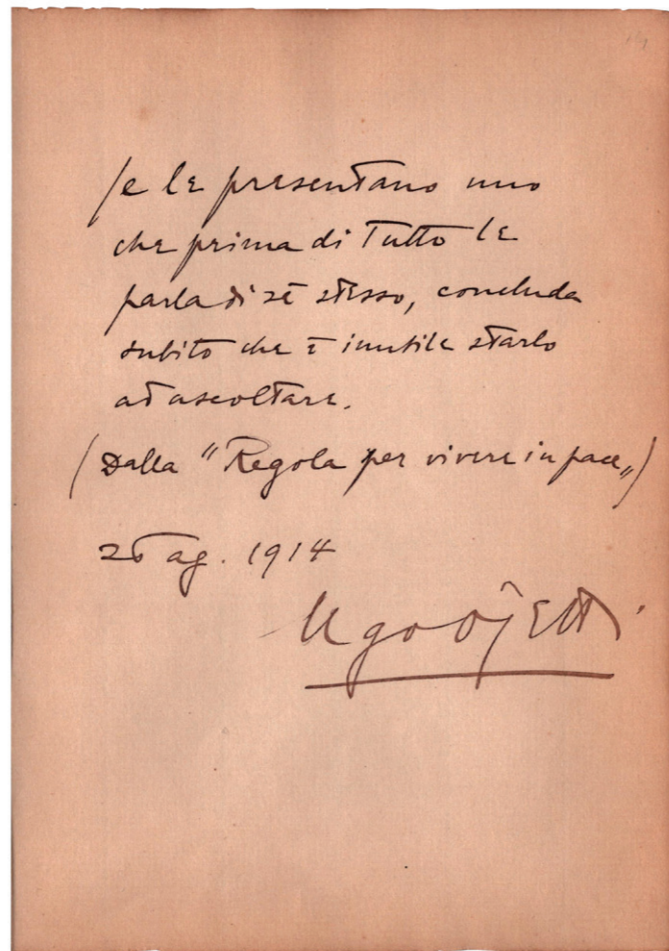 Se le presentano uno
che prima di tutto le
parla di sé stesso, concluda
subito che è inutile starlo
ad ascoltare.
(Dalla "Regola per vivere in pace")
ag. 1914
Ugo Ojetti